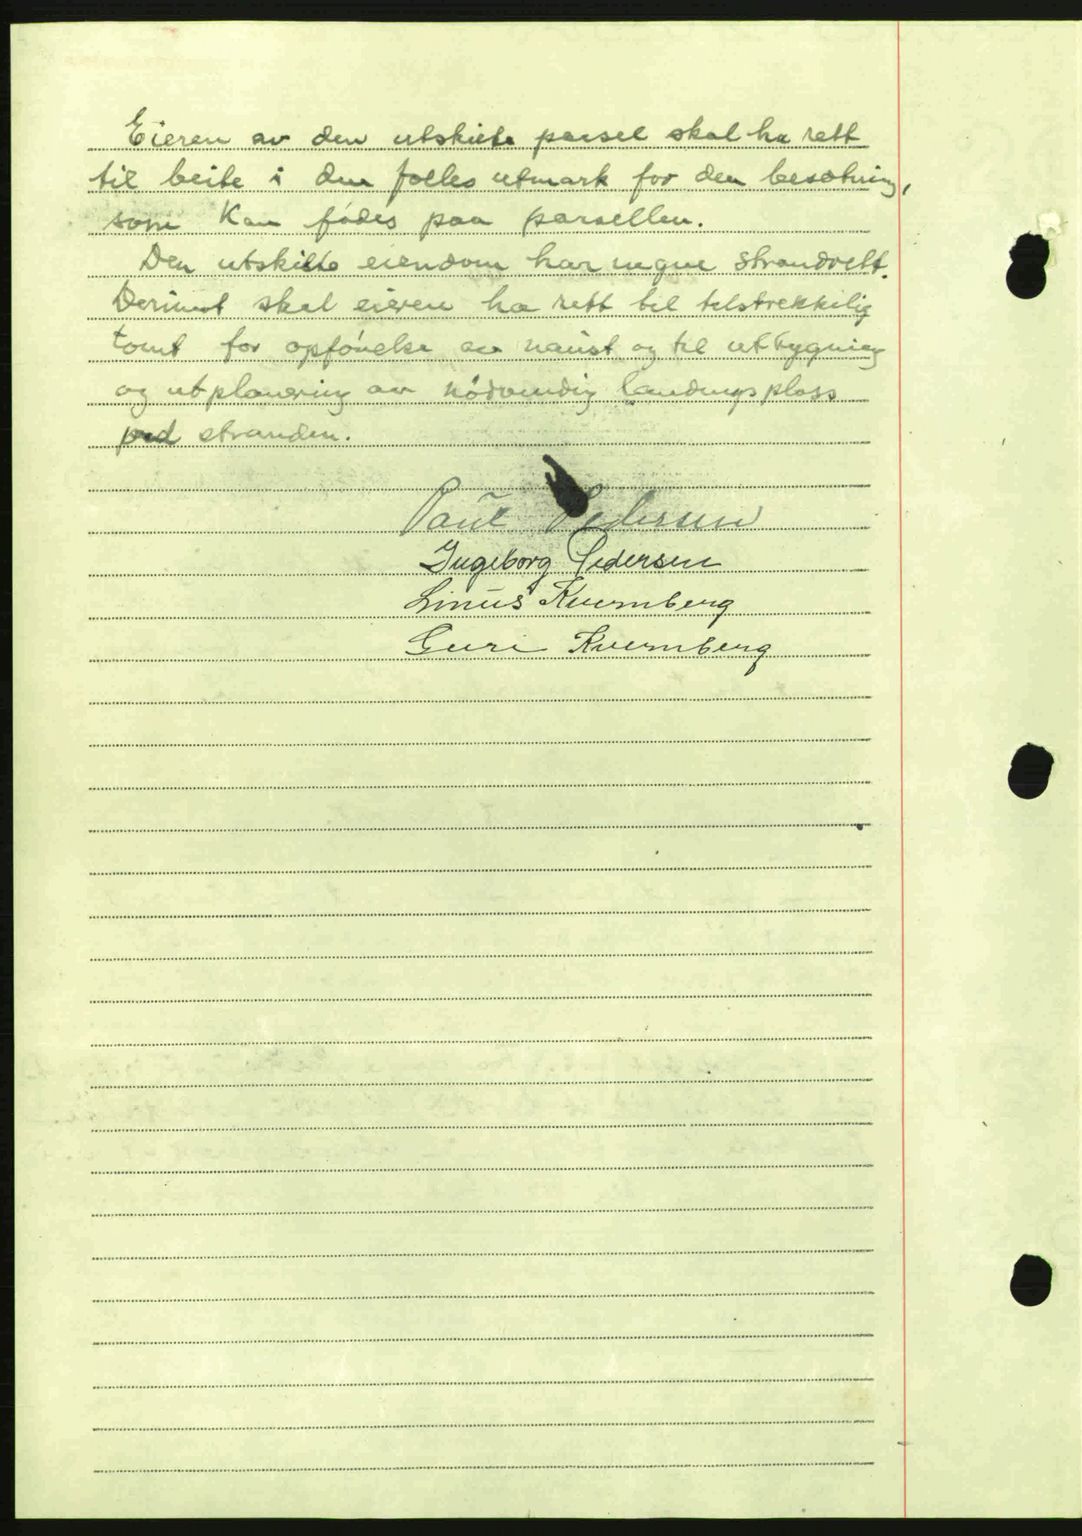 Eieren av den utskilte parsel skal ha rett
til beite i den felles utmark for den besetning,
som kan fødes paa parsellen.
Den utskilte eiendom har ingen strandrett.
Derimot skal eieren ha rett til tilstrekkelig
tomt for opførelse av naust og til utbygning
og utplanering av nødvendig landingsplass
ved stranden.
Paul Pedersen
Ingeborg Pedersen
Linus Kvernberg
Guri Kvernberg